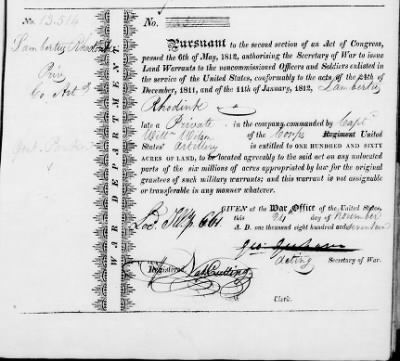 No. 13.514
No.
Lambertus Rhodink
Priv
Co Art of
Pursuant to the second section of an Act of Congress,
passed the 6th of May, 1812, authorising the Secretary of War to issue
Land Warrants to the noncommissioned Officers and Soldiers enlisted in
the service of the United States, conformably to the acts of the 24th of
December, 1811, and of the 11th of January, 1812, Lambertus
Rhodink
late a Private in the company commanded by Capt
Willm Wilson of the Corps Regiment United
States' Artillery is entitled to ONE HUNDRED AND SIXTY
ACRES OF LAND, to be located agreeably to the said act on any unlocated
parts of the six millions of acres appropriated by law for the original
grantees of such military warrants; and this warrant is not assignable
or transferable in any manner whatever.
GIVEN at the War Office of the United States,
this 24 day of November
A. D. one thousand eight hundred and seventeen
Geo: Graham
Acting Secretary of War.
Registered
Nat Cutting
Clerk.
WAR DEPARTMENT